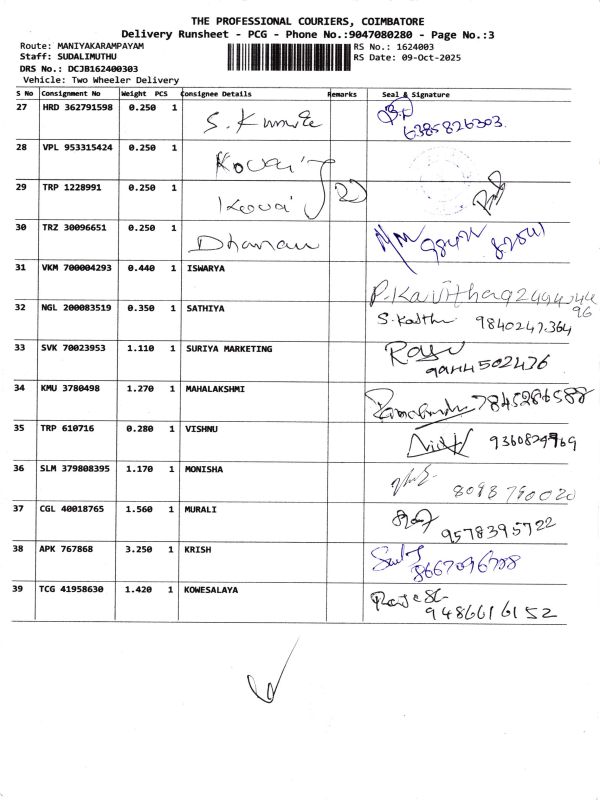 THE PROFESSIONAL COURIERS, COIMBATORE
Delivery Runsheet - PCG - Phone No.:9047080280 - Page No.:3
Route: MANIYAKARAMPAYAM RS No.: 1624003
Staff: SUDALIMUTHU RS Date: 09-Oct-2025
DRS No.: DCJB162400303
Vehicle: Two Wheeler Delivery
S No Consignment No Weight PCS Consignee Details Remarks Seal & Signature
27 HRD 362791598 0.250 1 6385826303
28 VPL 953315424 0.250 1 Kovai
29 TRP 1228991 0.250 1 Kovai
30 TRZ 30096651 0.250 1
31 VKM 700004293 0.440 1 ISWARYA P.Kavitha
32 NGL 200083519 0.350 1 SATHIYA 9840247364
33 SVK 70023953 1.110 1 SURIYA MARKETING 9944502476
34 KMU 3780498 1.270 1 MAHALAKSHMI 7845286588
35 TRP 610716 0.280 1 VISHNU
36 SLM 379808395 1.170 1 MONISHA 8098790020
37 CGL 40018765 1.560 1 MURALI 9578395722
38 APK 767868 3.250 1 KRISH
39 TCG 41958630 1.420 1 KOWESALAYA 9486616152